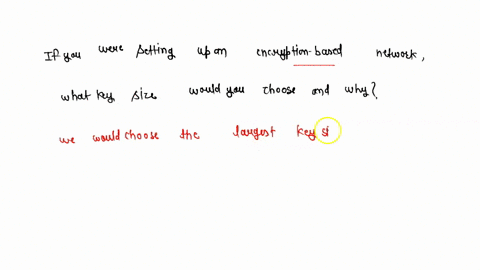 If you were setting up an encryption-based network,
what key size would you choose and why?
we would choose the largest key si